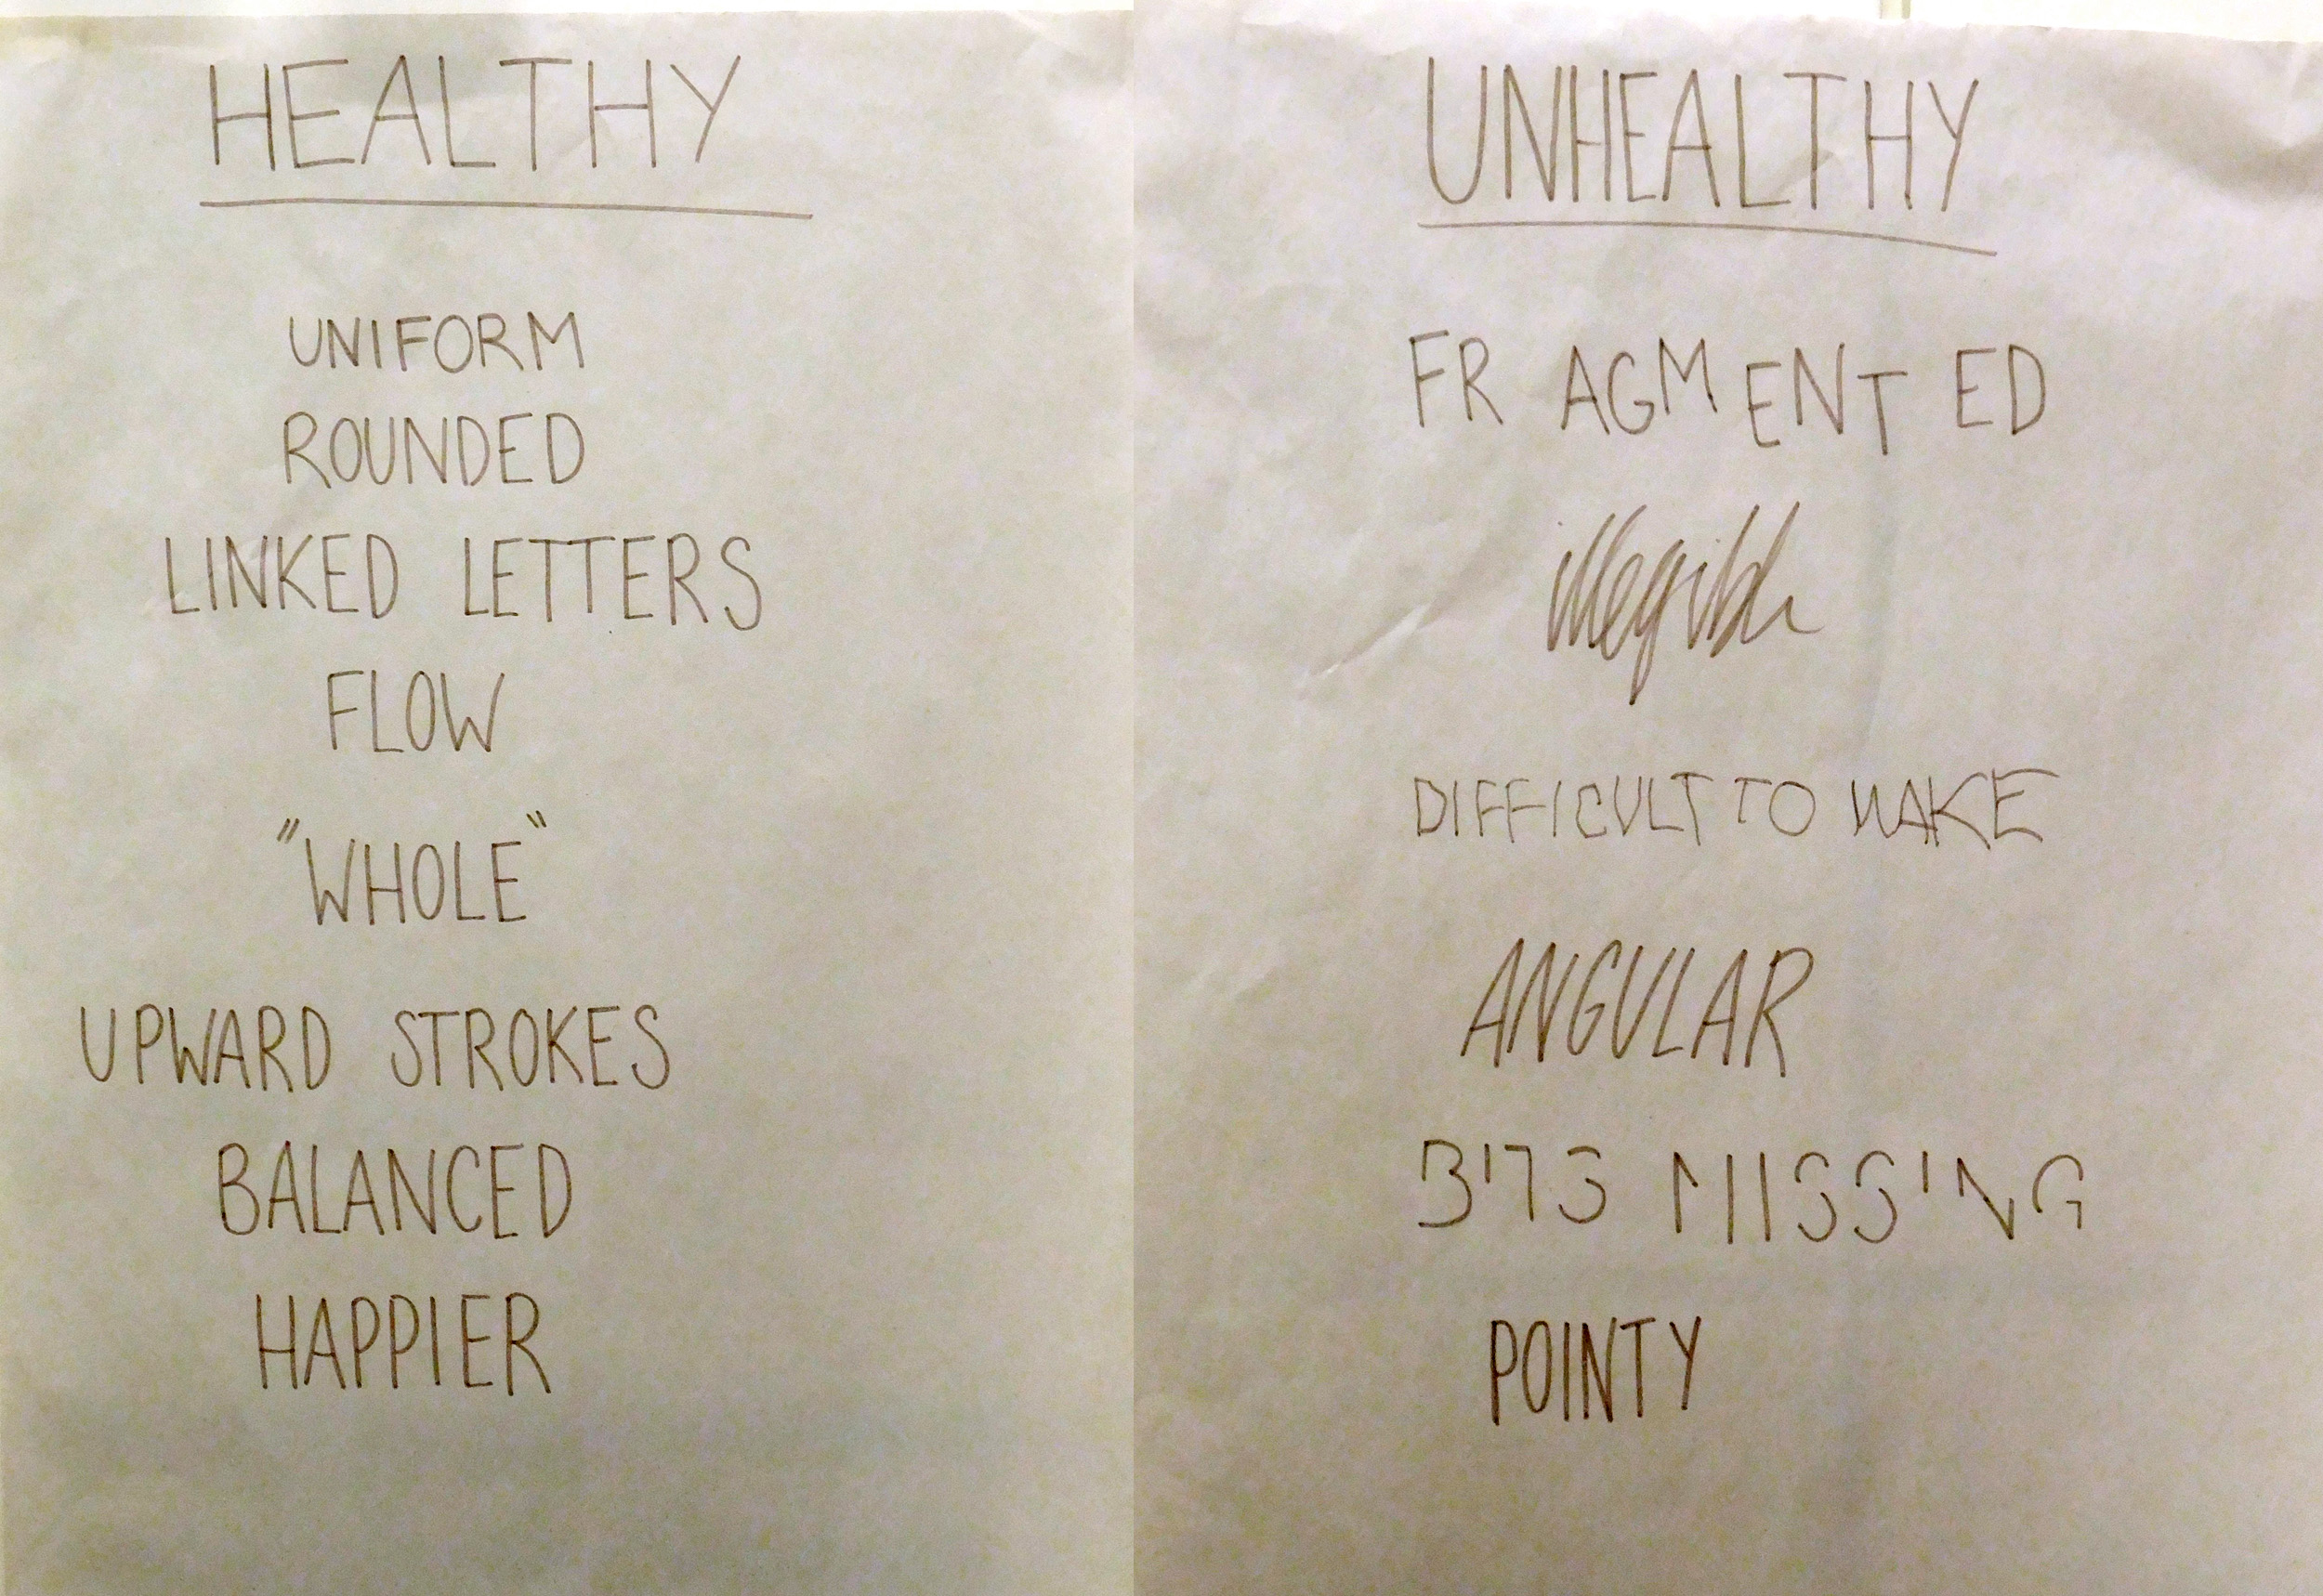 HEALTHY
UNIFORM
ROUNDED
LINKED LETTERS
FLOW
"WHOLE"
UPWARD STROKES
BALANCED
HAPPIER
UNHEALTHY
FRAGMENTED
illegible
DIFFICULT TO MAKE
ANGULAR
BITS MISSING
POINTY